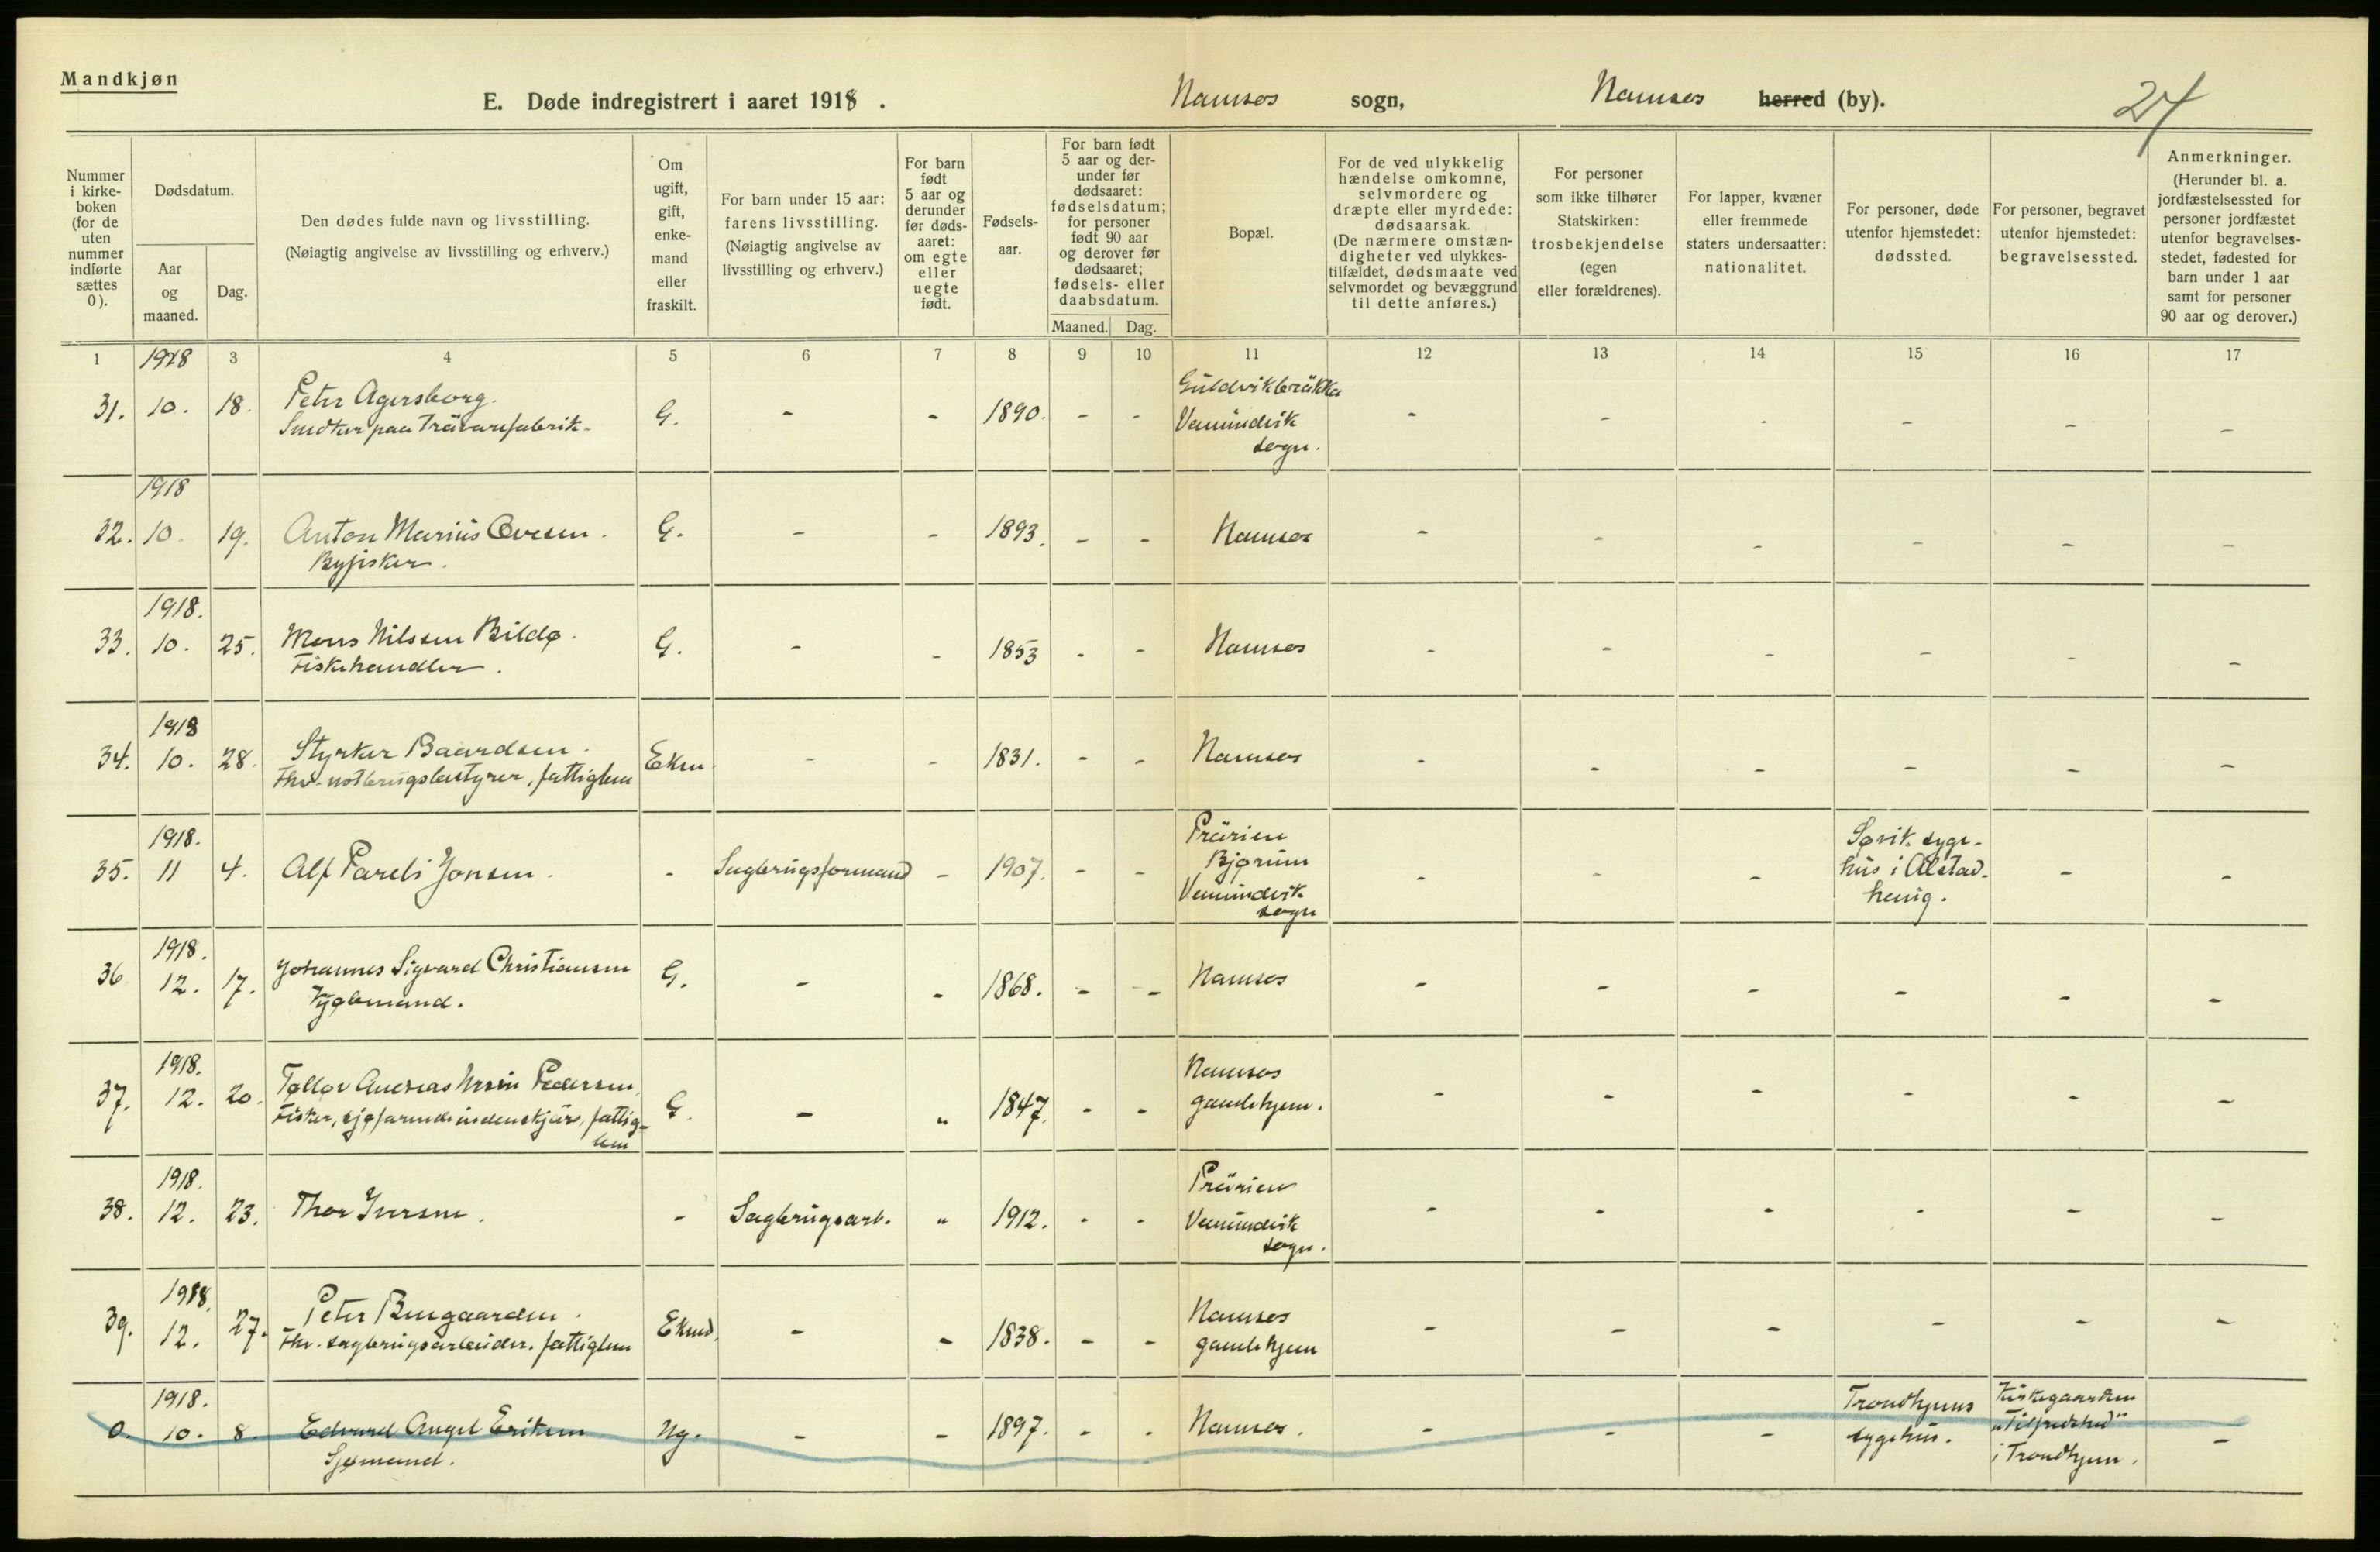 Mandkjøn
E. Døde indregistrert i aaret 1918 .
Namsos sogn,
Namsos herred (by).
24
Nummer i kirke- boken (for de uten nummer indførte sættes 0).
Dødsdatum.
Aar og maaned.
Dag.
Den dødes fulde navn og livsstilling.
(Nøiagtig angivelse av livsstilling og erhverv.)
Om ugift, gift, enke- mand eller fraskilt.
For barn under 15 aar: farens livsstilling.
(Nøiagtig angivelse av livsstilling og erhverv.)
For barn født 5 aar og derunder før døds- aaret: om egte eller uegte født.
Fødsels- aar.
For barn født 5 aar og der- under før dødsaaret: fødselsdatum; for personer født 90 aar og derover før dødsaaret; fødsels- eller daabsdatum.
Maaned. Dag.
Bopæl.
For de ved ulykkelig hændelse omkomne, selvmordere og dræpte eller myrdede: dødsaarsak.
(De nærmere omstæn- digheter ved ulykkes- tilfældet, dødsmaate ved selvmordet og bevæggrund til dette anføres.)
For personer som ikke tilhører Statskirken: trosbekjendelse (egen eller forældrenes).
For lapper, kvæner eller fremmede staters undersaatter: nationalitet.
For personer, døde utenfor hjemstedet: dødssted.
For personer, begravet utenfor hjemstedet: begravelsessted.
Anmerkninger.
(Herunder bl. a. jordfæstelsessted for personer jordfæstet utenfor begravelses- stedet, fødested for barn under 1 aar samt for personer 90 aar og derover.)
1 1918 3 4 5 6 7 8 9 10 11 12 13 14 15 16 17
31. 10. 18. Peter Agersborg. G. - - 1890. - - Guldvikbrækka - - - - - -
Snedker paa Trævarefabrik. Vemundvik
sogn.
1918
32. 10. 19. Anton Marius Ovesen. G. - - 1893. - - Namsos - - - - - -
Byfisker.
1918.
33. 10. 25. Mons Nilssen Bildø. G. - - 1853 - - Namsos - - - - - -
Fiskehandler.
1918
34. 10. 28. Styrker Baardsen. Ekm - - 1831. - - Namsos - - - - - -
Fhv. notbrugsbestyrer, fattiglem
1918. Prærien Søvik syge-
35. 11 4. Alf Pareli Jonsen. - Sagbrugsformand - 1907. - - Bjørum - - - hus i Alstad- - -
Vemundvik haug.
sogn
1918.
36 12. 17. Johannes Sigvard Christiansen G. - - 1868. - - Namsos - - - - - -
1918. Namsos
37. 12. 20. Andreas Pedersen G. - " 1847. - - gamlehjem. - - - - - -
Fisker, sjøfarende indenskjærs, fattig-
lem
1918. Prærien
38. 12. 23. Thor Iversen. - Sagbrugsarb. " 1912. - - Vemundvik - - - - - -
sogn.
1918. Namsos
39. 12. 27. Peter Ekmd. - - 1838. - - gamlehjem - - - - - -
Fhv. sagbrugsarbeider. fattiglem
1918. Trondhjems Kirkegaarden
0. 10. 8. Edvard Angel Eriksen Ug. - - 1897. - - Namsos. - - - sygehus. „Tilfredshed" -
Sjømand. i Trondhjem.